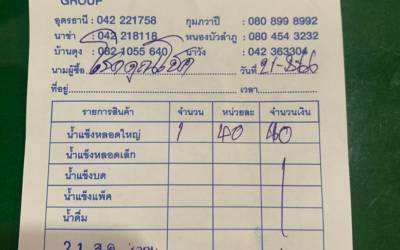 GROUP
อุดรธานี : 042 221758 กุมภวาปี : 080 899 8992
นาข่า : 042 218118 หนองบัวลำภู : 080 454 3232
บ้านดุง : 082 1055 640 นาวัง : 042 363304
นามผู้ซื้อ วันที่
ที่อยู่ เวลา
รายการสินค้า จำนวน หน่วยละ จำนวนเงิน
น้ำแข็งหลอดใหญ่ 1 40 40
น้ำแข็งหลอดเล็ก
น้ำแข็งบด
น้ำแข็งแพ็ค
น้ำดื่ม
21 ส.ค.